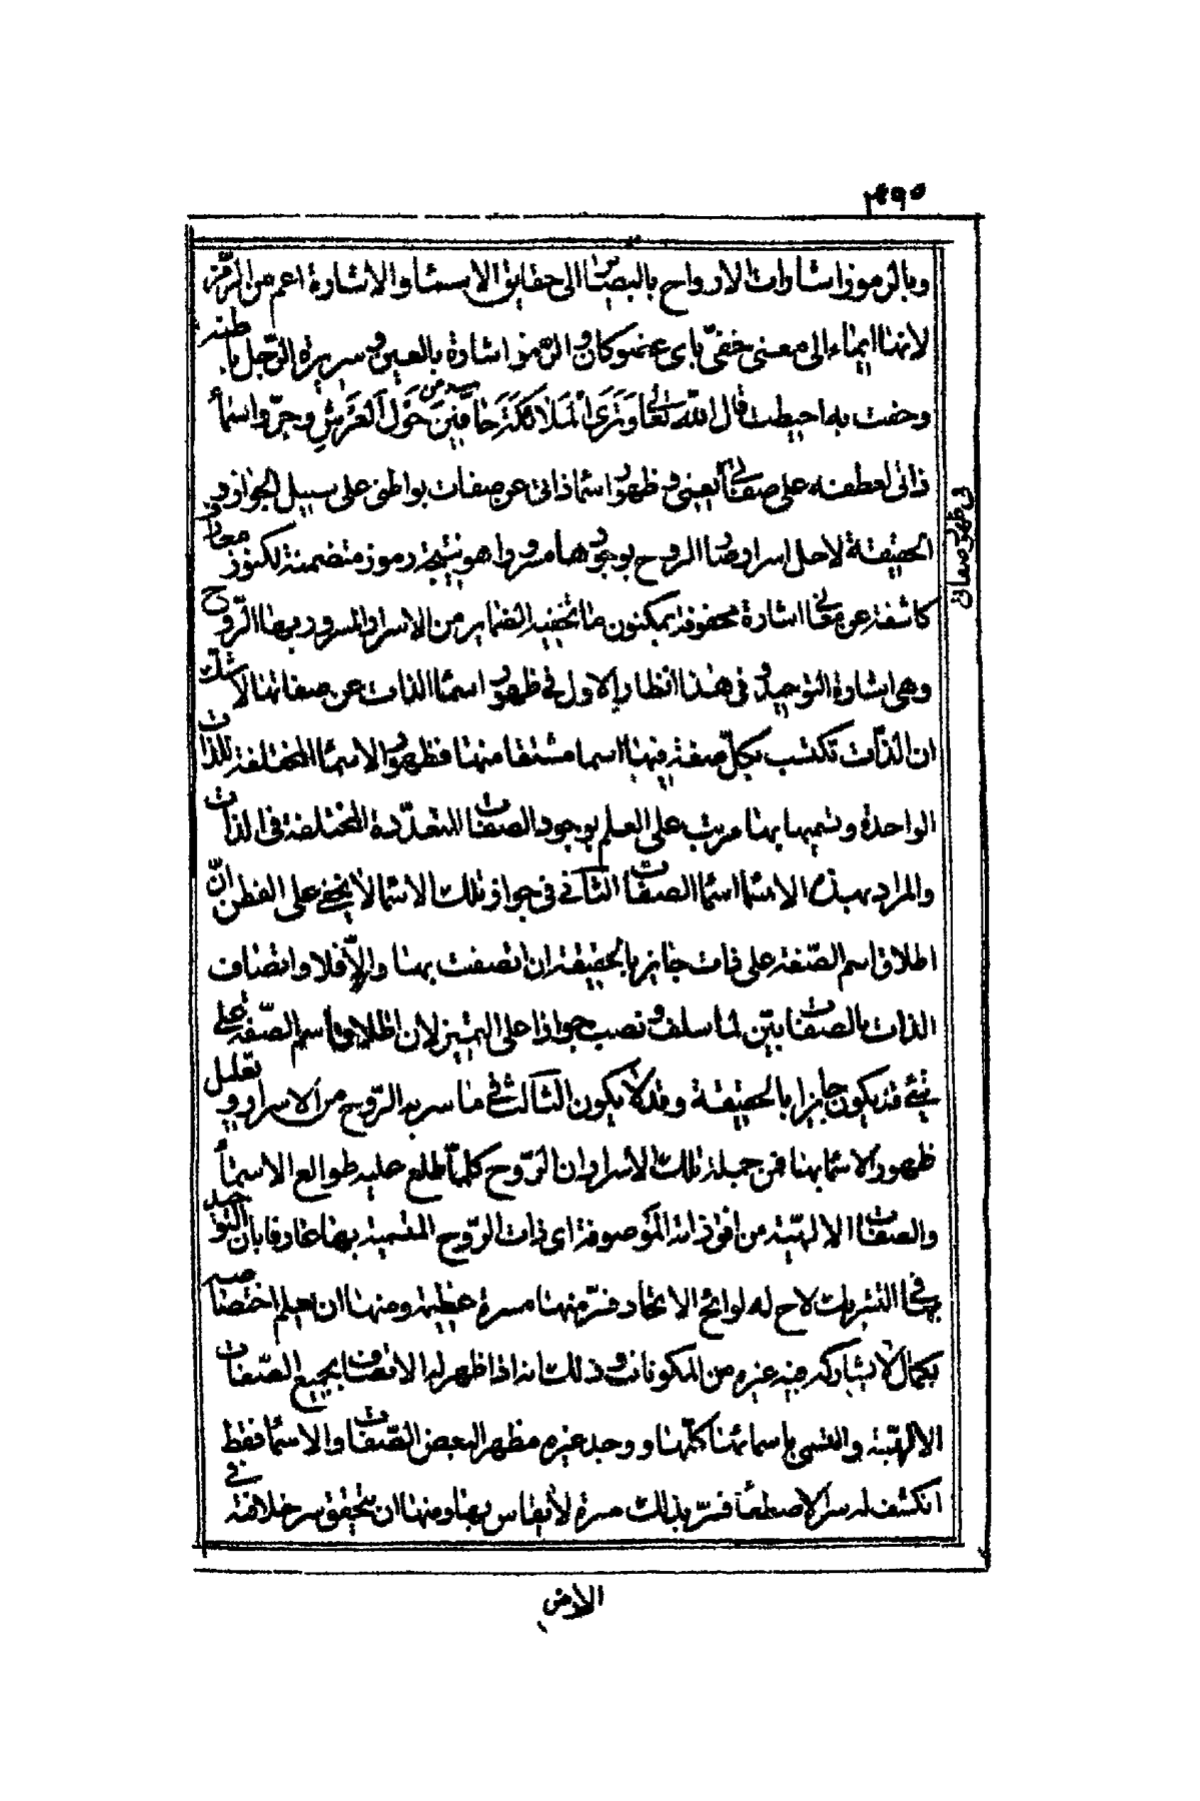 ٢٩٥
وبالرموز اشارات الارواح بالبصائر الى حقايق الاسماء والاشارة اعم من الرمز
لانها ايماء الى معنى خفى باى عضو كان والرمز اشارة بالعين وسريرة الرجل باطنه
وحفت به احيطت قال الله تعالى وَتَرَى الْمَلَائِكَةَ حَافِّينَ مِنْ حَوْلِ الْعَرْشِ وجرّ واسماء
ذاتى لعطفه على صفاتى يعنى فى ظهور اسماء ذاتى عن صفات بواطنى على سبيل الجواز و
فى ظهور صفاتى
الحقيقة لاجل اسرار صار الروح بوجودها مسرورا هو نتيجة رموز متضمنة لكنوز معان
كاشفة عن معانى اشارة محفوفة بمكنون ما تخفيه الضماير من الاسرار المسرور بها الروح
وهى اشارة التوحيد و فى هذا انظار الاول فى ظهور اسماء الذات عن صفاتها لا شك
ان الذات تكتسب بكل صفة فيها اسما مشتقا منها فظهور الاسماء المختلفة للذات
الواحدة وتسميها بها مرتب على العلم بوجود الصفات المتعددة المختلفة فى الذات
والمراد بهذه الاسماء اسماء الصفات الثانى فى جواز تلك الاسماء لا يخفى على الفطن انّ
اطلاق اسم الصّفة على ذات جايز بالحقيقة ان اتصفت بها والّا فلا واتصاف
الذات بالصفات بيّن لما سلف ونصب جوازا على التميز لان اطلاق اسم الصّفة على
شئ قد يكون جايزا بالحقيقة وقد لا يكون الثالث فى ما سر به الرّوح من الاسرار و تعليل
ظهور الاسماء بها فمن جملة تلك الاسرار ان الرّوح كلما طلع عليه طوالع الاسماء
والصفات الالهيّة من افق ذاته الموصوفة اى ذات الرّوح المتسمية بها عارفا بان التوحيد
فى التشريك لاح له لوائح الاتحاد فسرّ منها مسرة عظيمة ومنها ان يعلم اختصاصه
بكمال لا يشاركه فيه غيره من المكونات وذلك انه اذا ظهر له الاتصاف بجميع الصّفات
الالهيّة والتسمى باسمائها كلّها ووجد غيره مظهر البعض الصّفات والاسماء فقط
انكشف له سر الاصطفاء فسرّ بذلك مسرة لا يقاس بها ومنها ان يتحقق سر خلافته فى
الارض